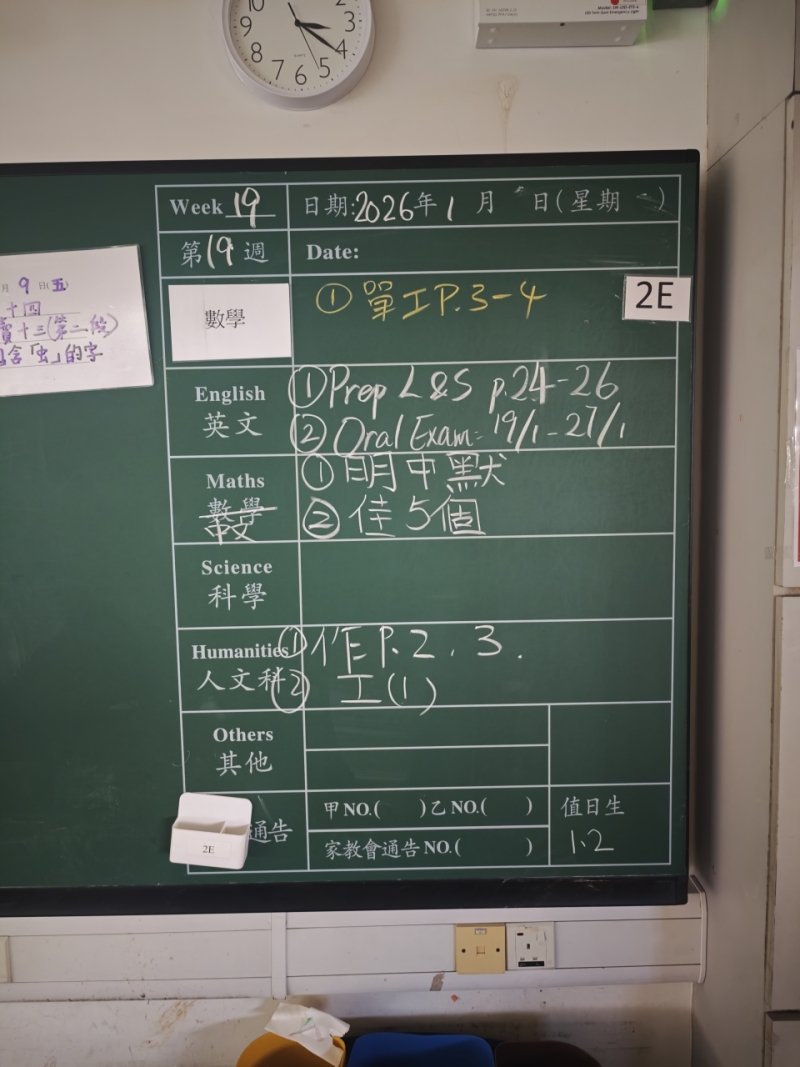 10
2
9
3
8
4
7
6
5
Week 19
日期:2026年1月 日(星期一)
第19週
Date:
2E
月9日(五)
十四
賣十三(第二段)
含「虫」的字
數學
①單工P.3-4
English
英文
①Prep L&S p.24-26
②Oral Exam: 19/1-27/1
Maths
數學
中文
①明中默
②佳5個
Science
科學
Humanities
人文科
①作P.2、3.
②工(1)
Others
其他
通告
甲NO.( )乙NO.( )
家教會通告NO.( )
值日生
1、2
2E